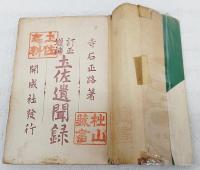 寺石正路著
訂正
増補
土佐遺聞録
開成社發行
土佐
史料